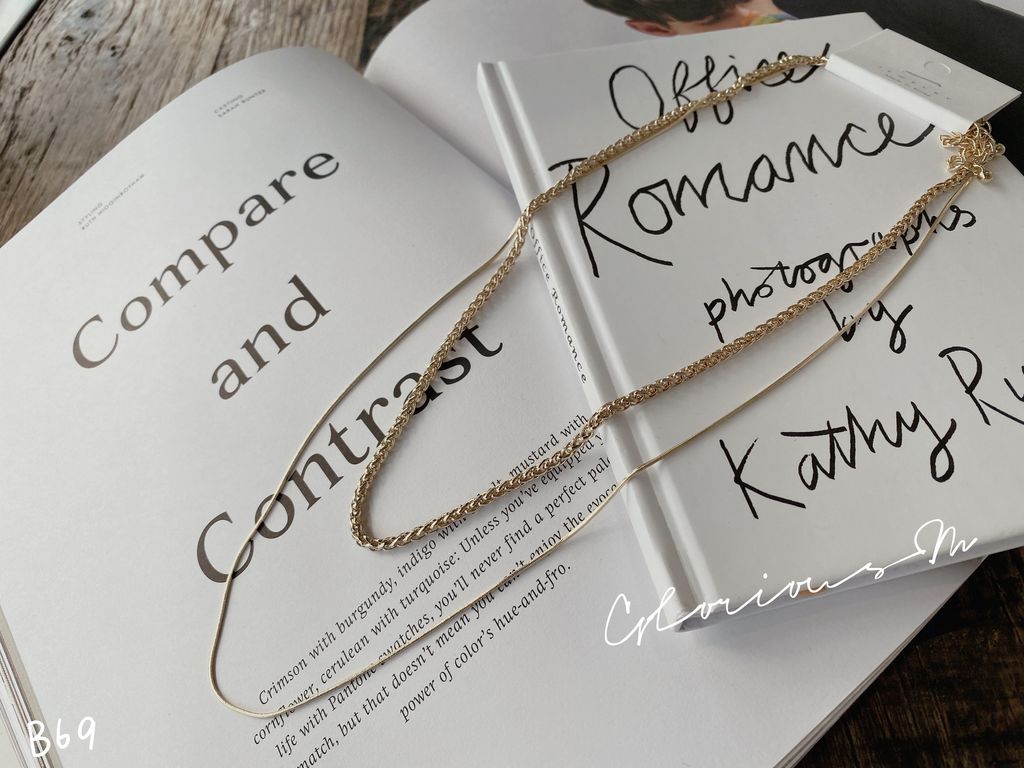 CASTING
SARAH BUNTER
STYLING
RUTH HIGGINBOTHAM
Compare
and
Contrast
Crimson with burgundy, indigo with mustard with
cornflower, cerulean with turquoise: Unless you've equipped y
life with Pantone swatches, you'll never find a perfect pale
match, but that doesn't mean you can't enjoy the evoca
power of color's hue-and-fro.
Office Romance
Office
Romance
photographs
by
Kathy Ry
Glorious M
B69